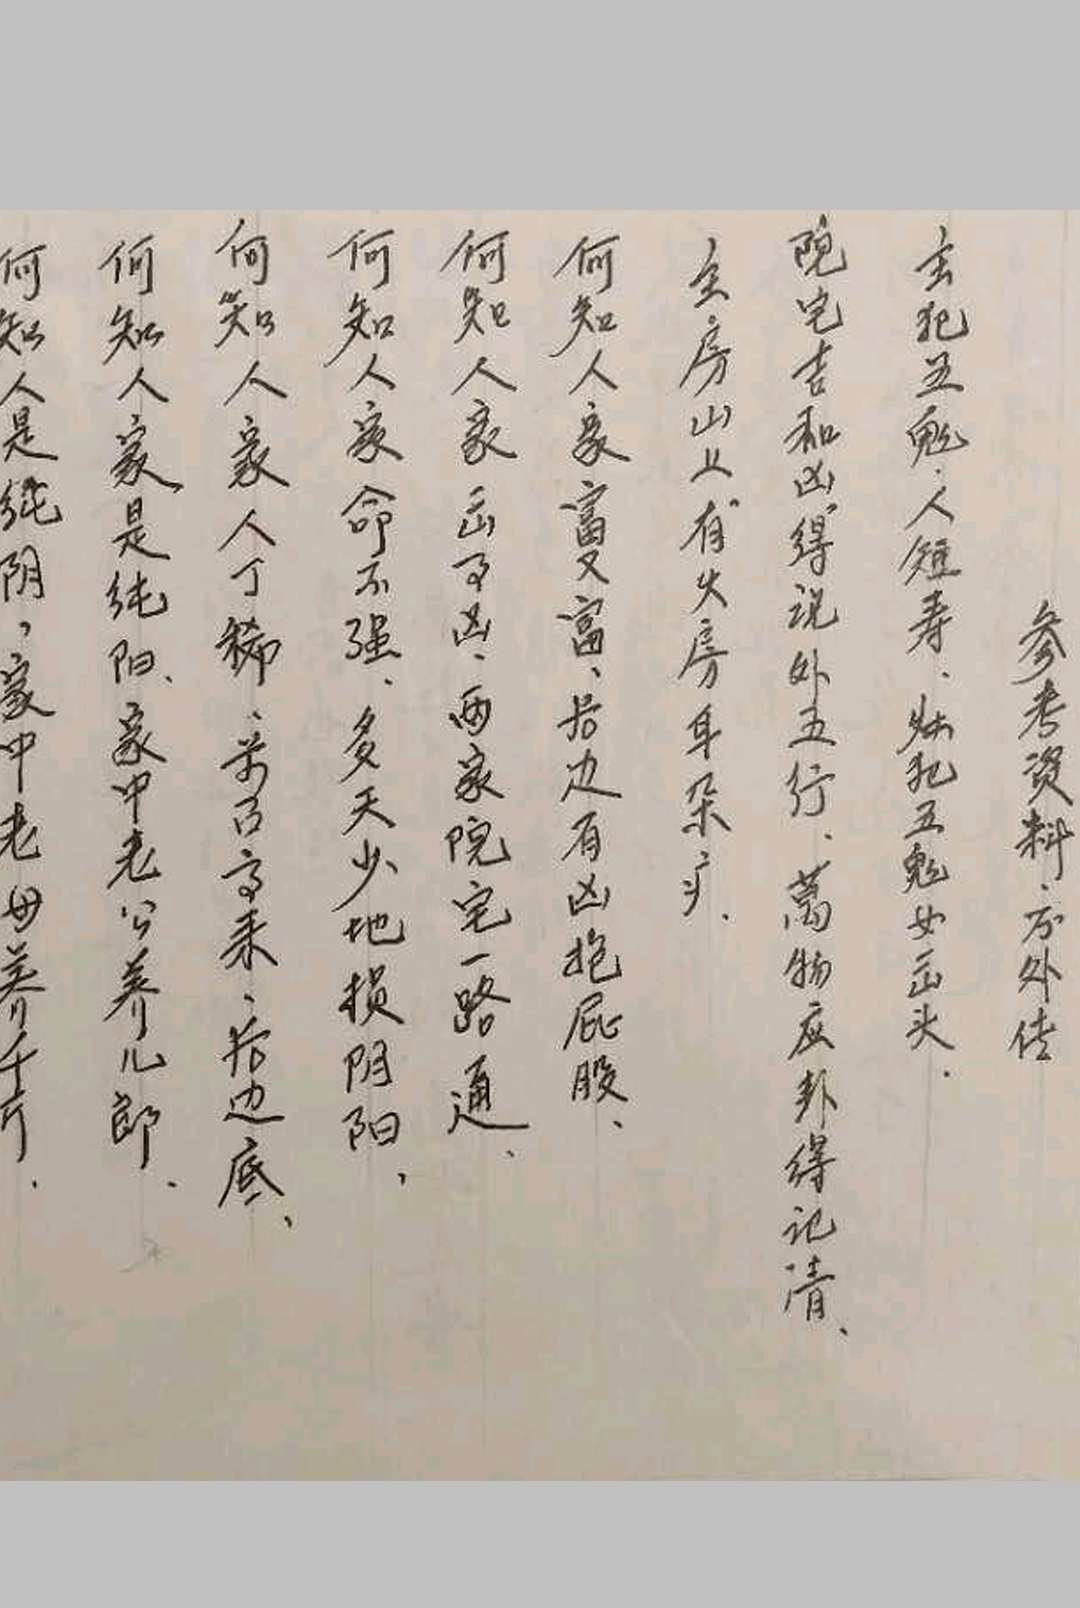 参考资料、不外传
主犯五鬼、人短寿、灶犯五鬼女出头.
院宅吉和凶得说外五行、萬物应卦得记清、
主房山上有火房耳朵疒.
何知人家富又富、后边有凶抱屁股、
何知人家出了凶、两家院宅一路通、
何知人家命不强、多天少地损阴阳、
何知人家人丁稀、高来、后边底、
何知人家是纯阳、家中老公养儿郎、
何知人是纯阴，家中老母养千斤.